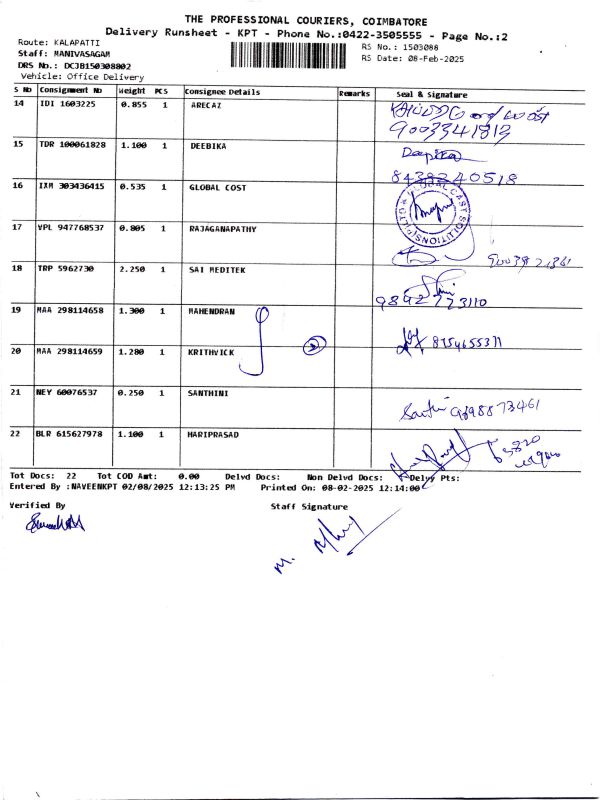 THE PROFESSIONAL COURIERS, COIMBATORE
Delivery Runsheet - KPT - Phone No.:0422-3505555 - Page No.:2
Route: KALAPATTI
Staff: MANIVASAGAM
DRS No.: DCJB150308802
Vehicle: Office Delivery
RS No.: 1503088
RS Date: 08-Feb-2025
S No Consignment No Weight PCS Consignee Details Remarks Seal & Signature
14 IDI 1603225 0.855 1 ARECAZ
9003341813
15 TDR 100061828 1.100 1 DEEBIKA Deepika
8438240518
16 IXM 303436415 0.535 1 GLOBAL COST
17 VPL 947768537 0.805 1 RAJAGANAPATHY
18 TRP 5962730 2.250 1 SAI MEDITEK
9842773110
19 MAA 298114658 1.300 1 MAHENDRAN
20 MAA 298114659 1.280 1 KRITHVICK
21 NEY 60076537 0.250 1 SANTHINI
22 BLR 615627978 1.100 1 HARIPRASAD
Tot Docs: 22 Tot COD Amt: 0.00 Delvd Docs: Non Delvd Docs: Delvy Pts:
Entered By :NAVEENKPT 02/08/2025 12:13:25 PM Printed On: 08-02-2025 12:14:00
Verified By Staff Signature